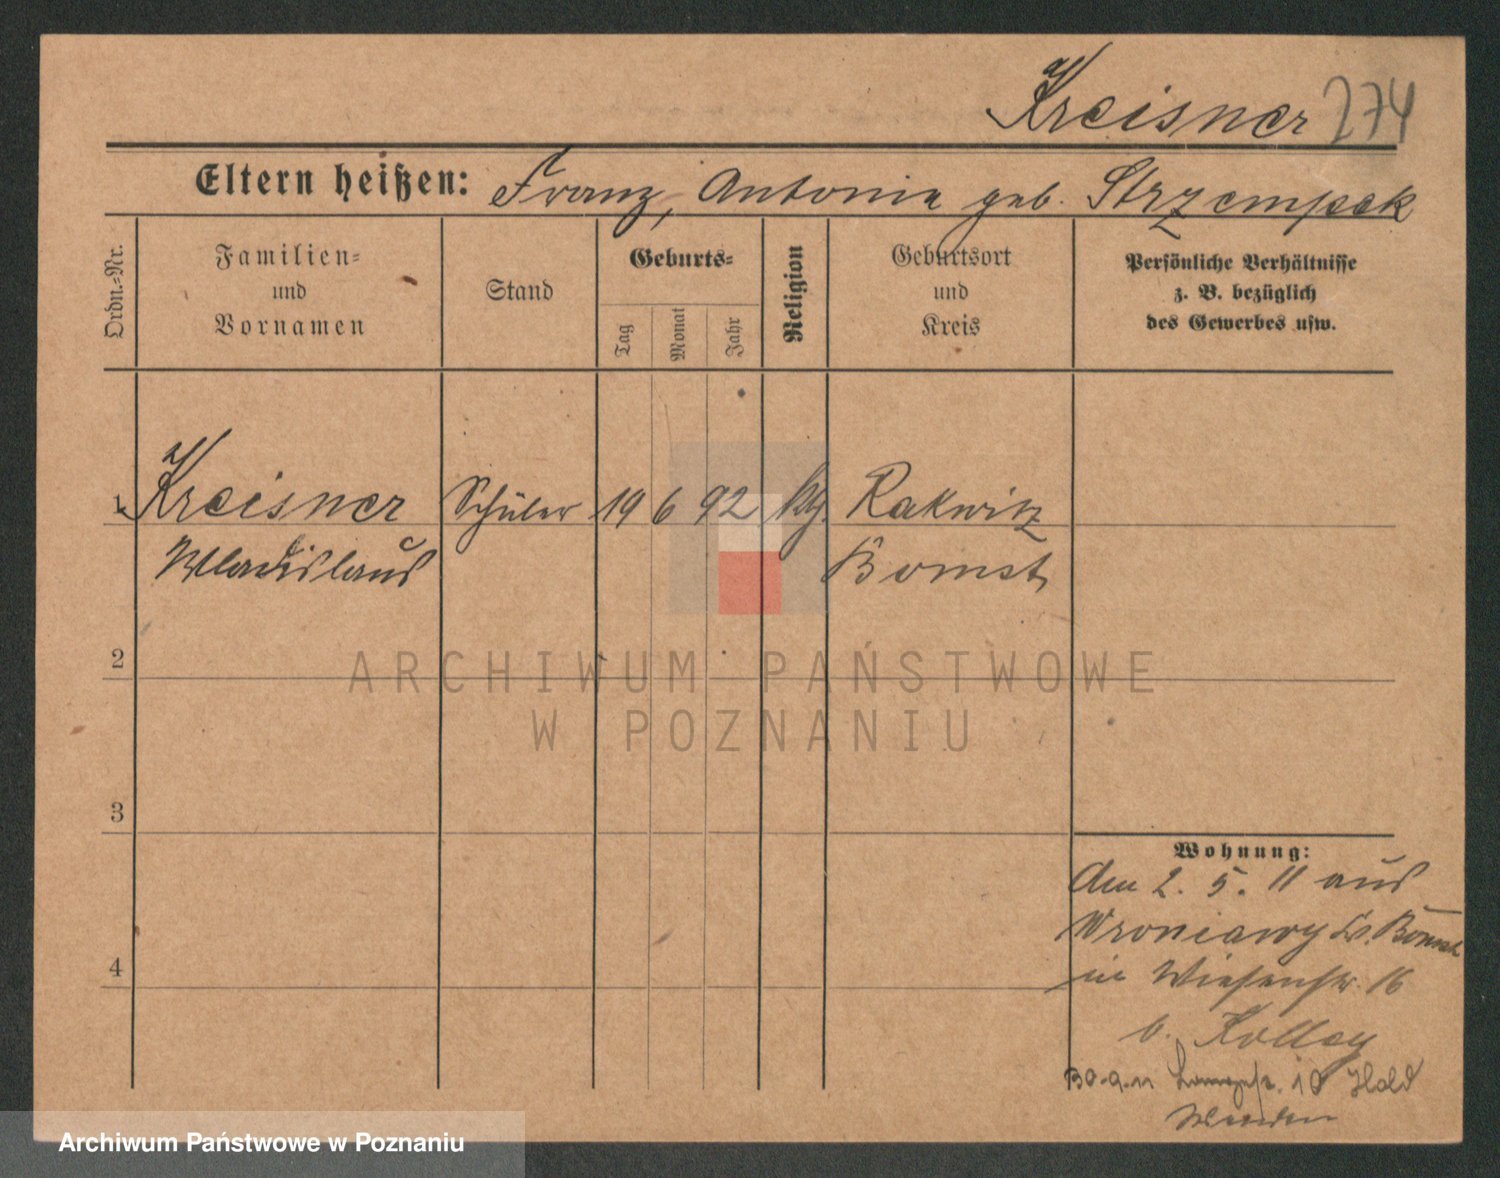 Kreisner 274
Eltern heißen: Franz, Antonie geb. Strzempek
Ordn.=Nr.
Familien=
und
Vornamen
Stand
Geburts=
Tag
Monat
Jahr
Religion
Geburtsort
und
Kreis
Persönliche Verhältnisse
z. B. bezüglich
des Gewerbes usw.
1 Kreisner Schüler 19 6 92 Rakwitz
Wladislaus Bomst
2
3
4
Wohnung:
Am 2. 5. 11 aus
Wroniawy Kr. Bomst
in Wiesenstr. 16
b. Kollay
30.9.11 10
ARCHIWUM PAŃSTWOWE
W POZNANIU
Archiwum Państwowe w Poznaniu